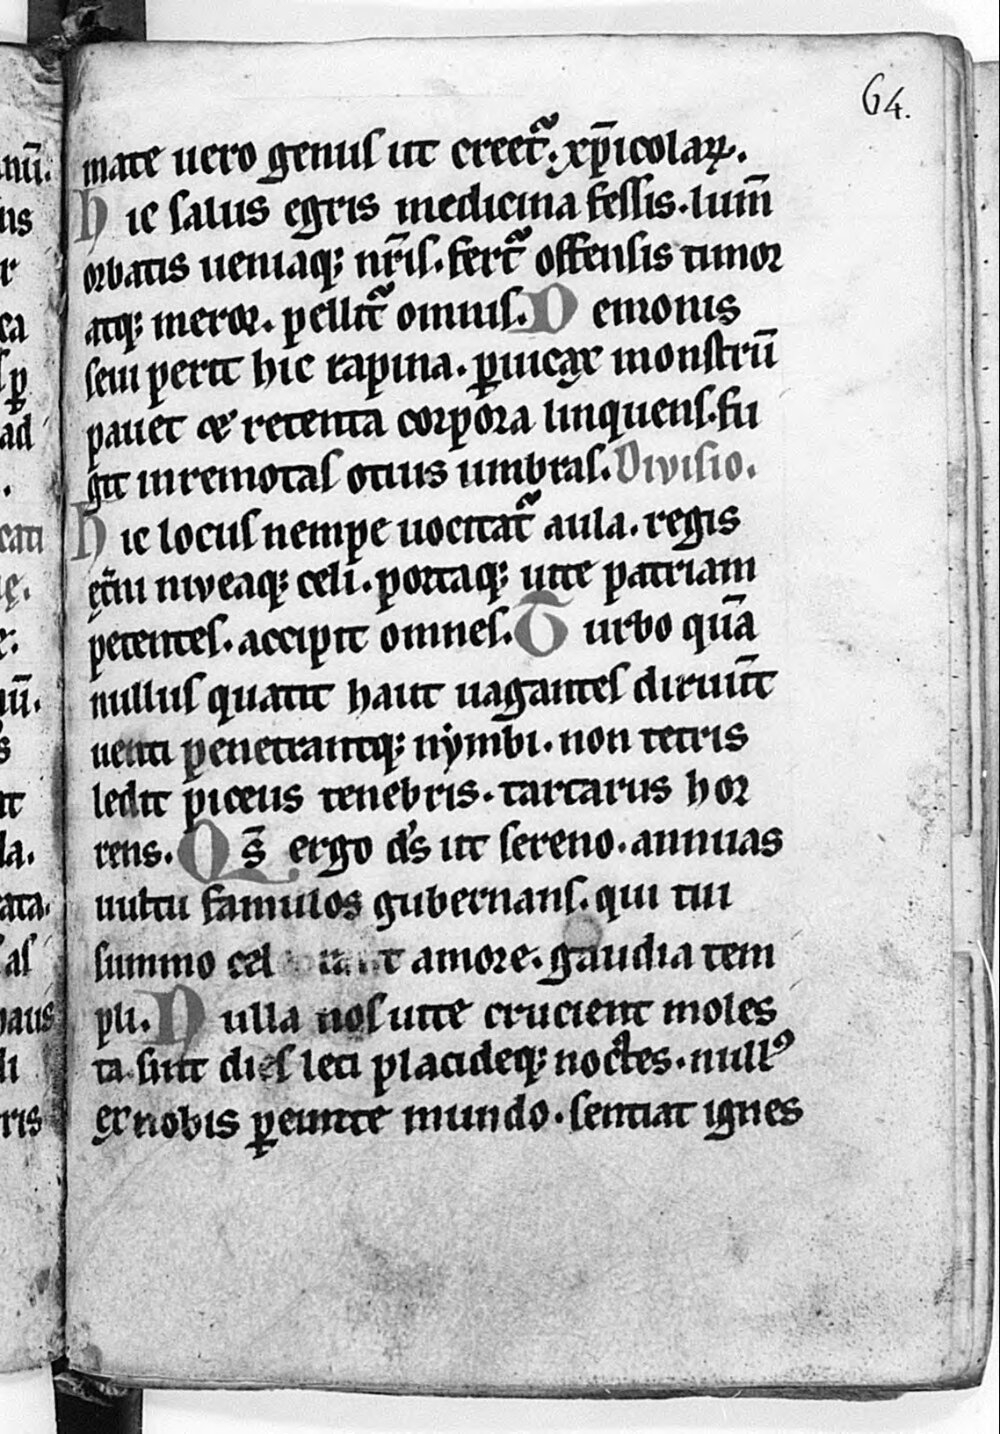 64.
nū.
mate uero genuſ ut creet᷑. xp̄icolaꝝ.
us
Hic ſalus egris medicina feſſis. lum̄
r
orbatis ueniaq; nr̄iſ. fert᷑ offenſis timor
ca
atq; meror. pellit᷑ omniſ. Demonis
ſ ꝑ
ſeui perit hic rapina. ꝑuicax monſtrū
ad
pauet & retenta corpora linquenſ. fu
.
git inremotaſ otius umbraſ. Diviſio.
cati
Hic locuſ nempe uocitat᷑ aula. regis
ę.
et̄ni niveaq; celi. portaq; uite patriam
e:
petenteſ. accipit omneſ. Turbo quā
nū.
nulluſ quatit haut uaganteſ diruūt
s
uenti penetrantq; nẏmbi. non tetris
it
ledit piceus tenebris. tartarus hor
la.
rens. Qs̄ ergo d̄s ut ſereno. annuas
ata.
uultu famulos gubernanſ. qui tui
aſ
ſummo cel t amore. gaudia tem
paus
pli. Nulla noſ uite crucient moles
li
ta ſint dieſ leti placideq; noctes. nullꝰ
ris
ex nobis ꝑeunte mundo. ſentiat ignes